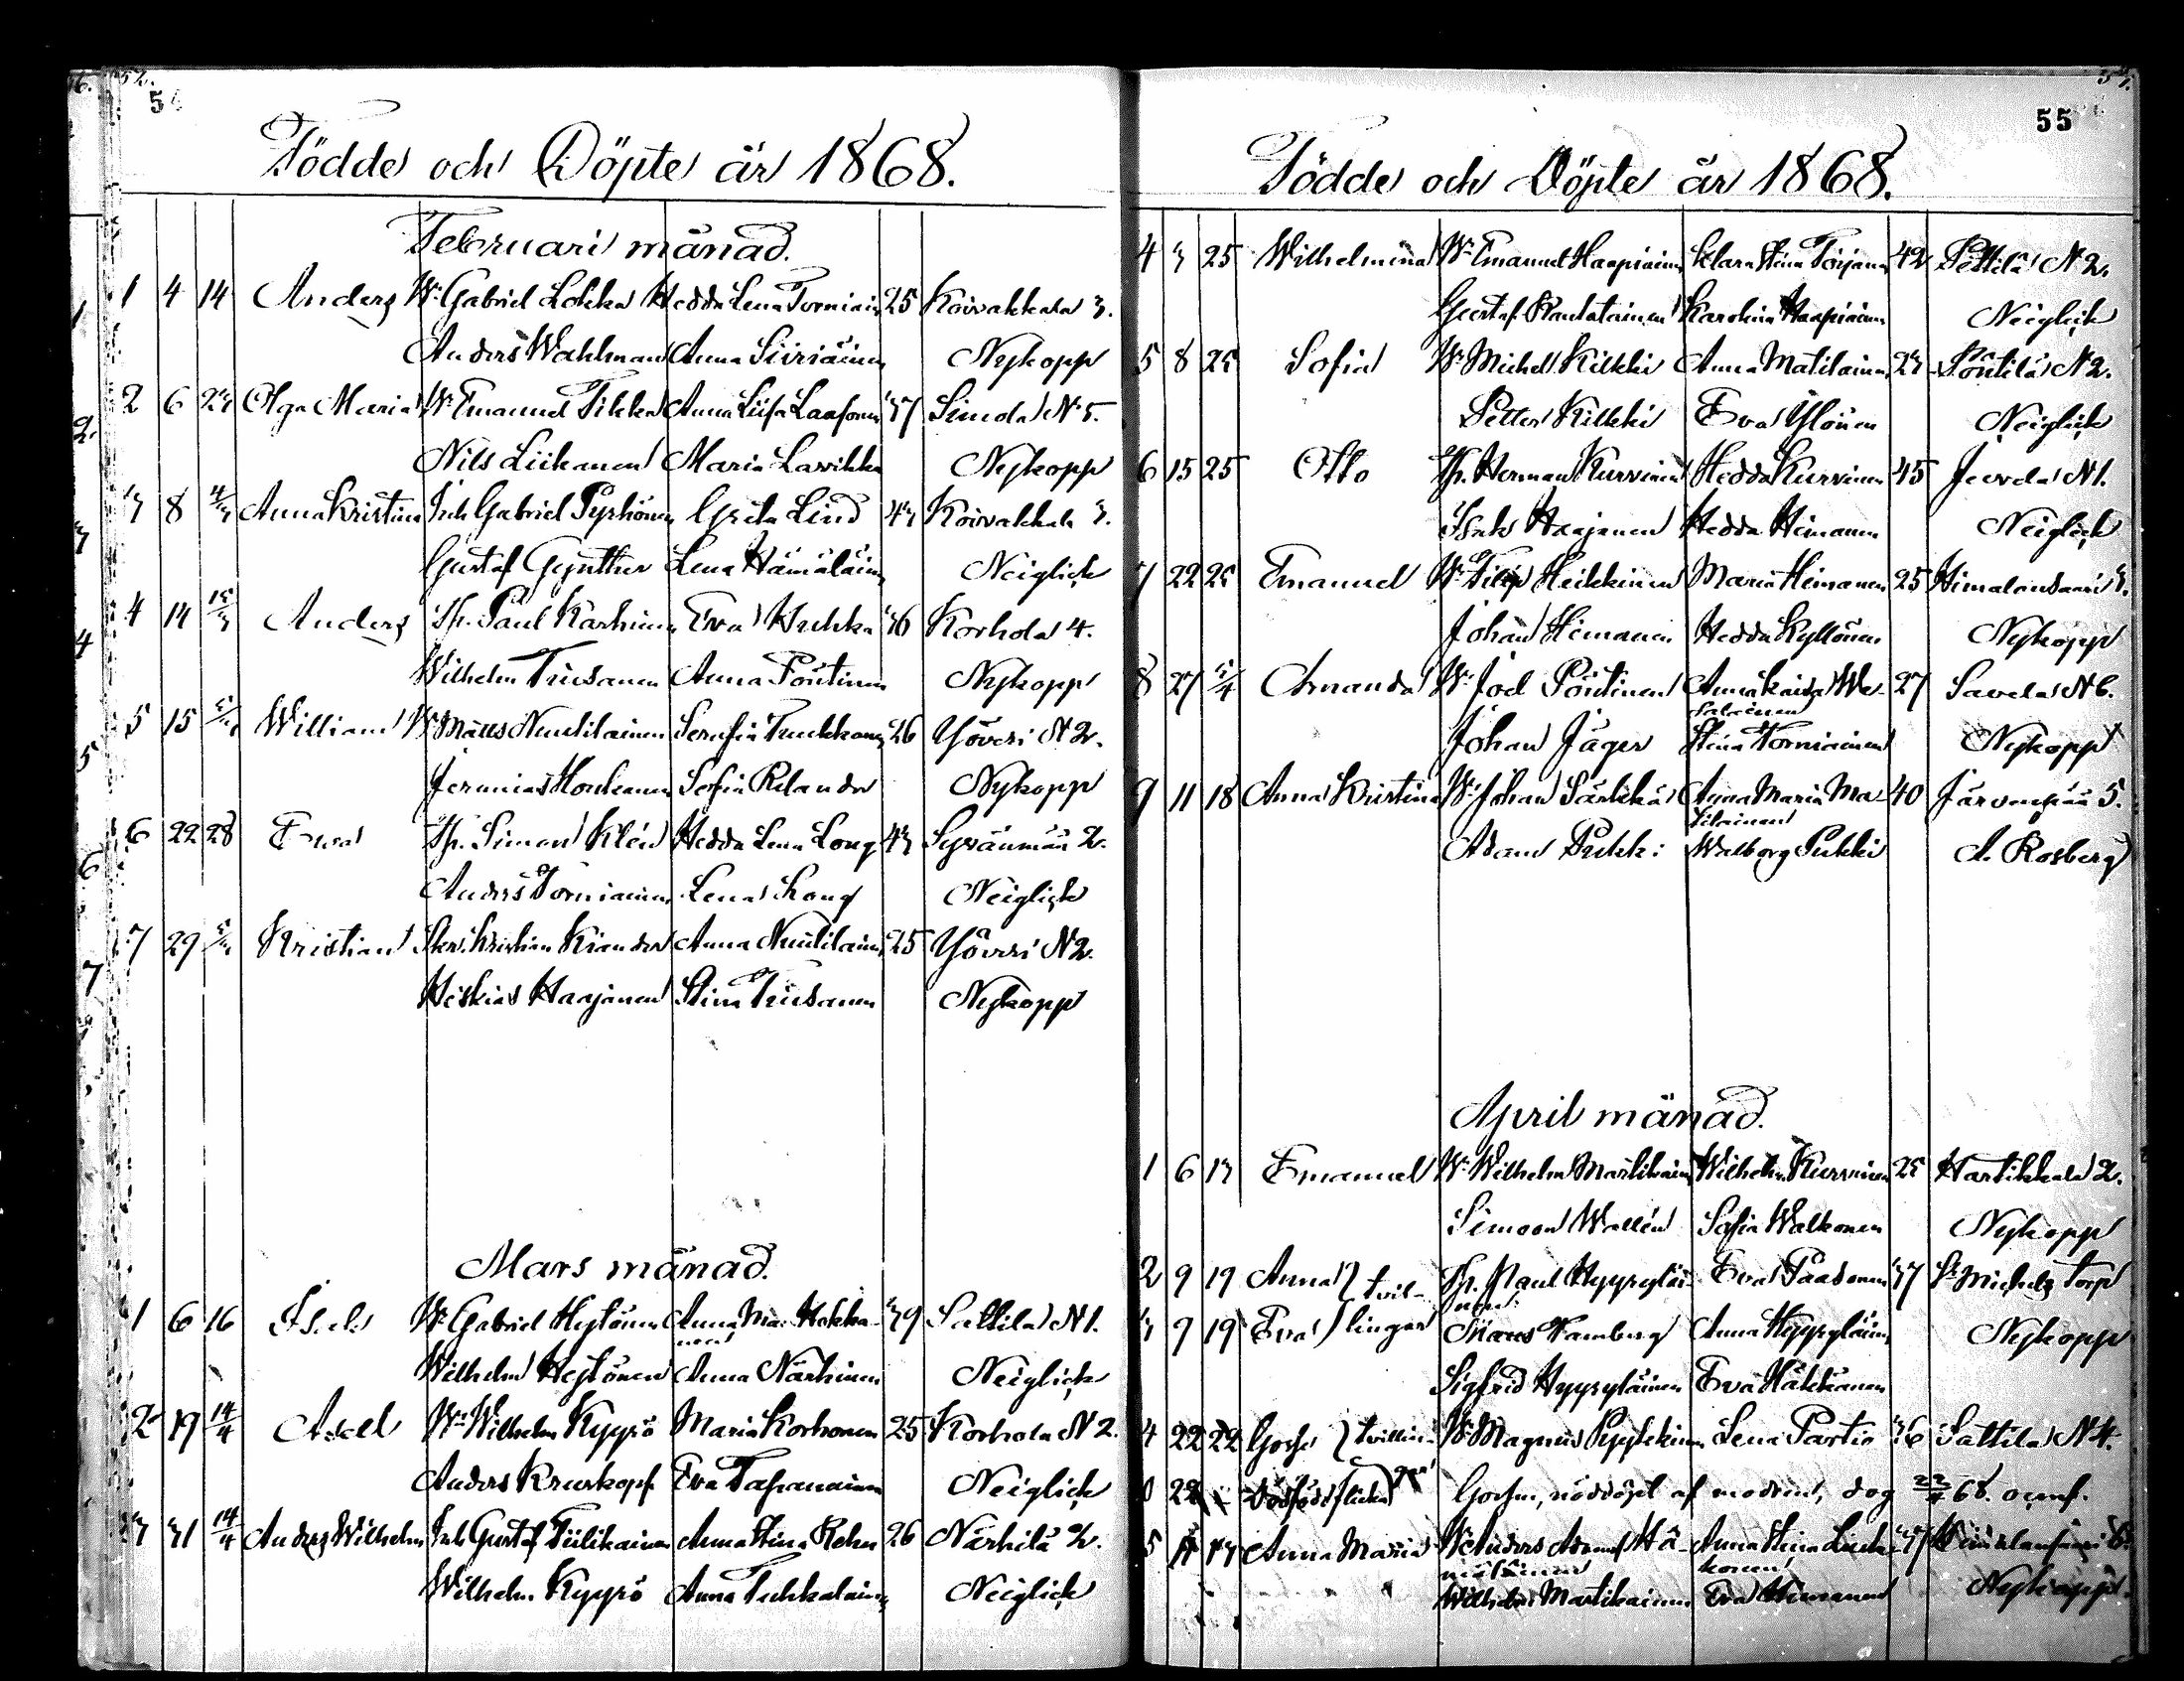 54
Födde och Döpte år 1868.
Februari månad.
1 4 14 Anders Wr Gabriel Lokka Hedda Lena Torniain 25 Koivakkala 3.
Anders Wahlman Anna Siiriäinen Nykopp
2 6 23 Olga Maria Wr Emanuel Tikka Anna Liisa 37 Simola N 5.
Nils Liikanen Maria Lavikka Nykopp
3 8 Anna Kristina Inh Gabriel Pyrhönen Greta Lind 43 Koivakkala 3.
Gustaf Gynther Lena Hämäläinen Neiglick
4 14 15/3 Anders Th. Paul Karhinen Eva Hukka 36 Korhola 4.
Wilhelm Triisanen Anna Pöntinen Nykopp
5 15 William Wr Matts Nuutilainen Serafia 26 Yöveri N 2.
Jeremias Sofia Relander Nykopp
6 22 28 Eva Th. Simon Klén Hedda Lena Long 43 Syväumäa 2.
Anders Torniainen Lena Long Neiglick
7 29 Kristian Kristian Kiander Anna Nuutilainen 25 Yöveri N 2.
Heskias Haajanen Stina Triisanen Nykopp
Mars månad.
1 6 16 Isak Wr Gabriel Heylönen Anna Mar. Hokka- 39 Sattila N 1.
nen
Wilhelm Heylönen Anna Närhinen Neiglick
2 19 14/4 Axel Wr Wilhelm Kyyrö Maria Korhonen 25 Korhola N 2.
Anders Kruskopf Eva Tapanainen Neiglick
3 31 14/4 Anders Wilhelm Inh Gustaf Tiilikainen Anna Stina Rehn 26 Närhilä 2.
Wilhelm Kyyrö Anna Tuhkalainen Neiglick
55
Födde och Döpte år 1868.
4 3 25 Wilhelmina Wr Emanuel Haapiainen Klara Stina 42 Pettilä N 2.
Gustaf Rautatainen Karolina Haapiainen Neiglick
5 8 25 Sofia Wr Michel Kilkki Anna Matilainen 23 Pöntilä N 2.
Petter Kilkki Eva Ylönen Neiglick
6 15 25 Otto Th. Herman Kurvinen Hedda Kurvinen 45 N 1.
Isak Haajanen Hedda Himanen Neiglick
7 22 25 Emanuel Wr Filip Heikkinen Maria Himanen 25 Himalansaari 3.
Johan Himanen Hedda Kyllönen Nykopp
8 27 5/4 Amanda Wr Joel Pöntinen Anna Kaisa We- 27 Savela N 6.
salainen
Johan Jäger Stina Torniainen Nykopp
9 11 18 Anna Kristina Wr Johan Särkkä Anna Maria Ma- 40 Järvenpää 5.
tilainen
Adam Pukki Walborg Pukki A. Rosberg
April månad.
1 6 13 Emanuel Wr Wilhelm Martikainen Wilhelm. Kurvinen 25 Hartikkala 2.
Simoon Wallén Sofia Walkonen Nykopp
2 9 19 Anna } tvil- Th. Paul Hyyryläi- Eva Paasonen 37 St Michels Torp
nen
3 9 19 Eva } lingar Mats Hamberg Anna Hyyryläinen Nykopp
Sigfrid Hyyryläinen Eva Häkkänen
4 22 22 Gosse } tvillin- Wr Magnus Pylkkinen Lena Partio 36 Sattila N 4.
0 22 Dödfödd flicka } gar Gossen, nöddöpt af modren, dog 22/4 68.
5 11 13 Anna Maria Wr Anders Hä- Anna Stina 37
mäläinen konen
Wilhelm Martikainen Eva Himanen Nykopp.